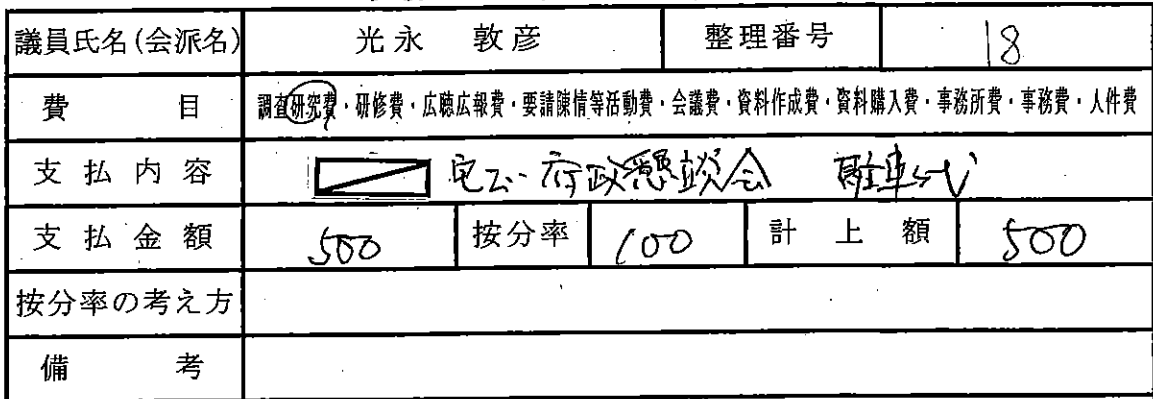 議員氏名(会派名) 光永 敦彦 整理番号 18
費目 調査研究費・研修費・広聴広報費・要請陳情等活動費・会議費・資料作成費・資料購入費・事務所費・事務費・人件費
支払内容 宅での府政懇談会 駐車代
支払金額 500 按分率 100 計上額 500
按分率の考え方
備考